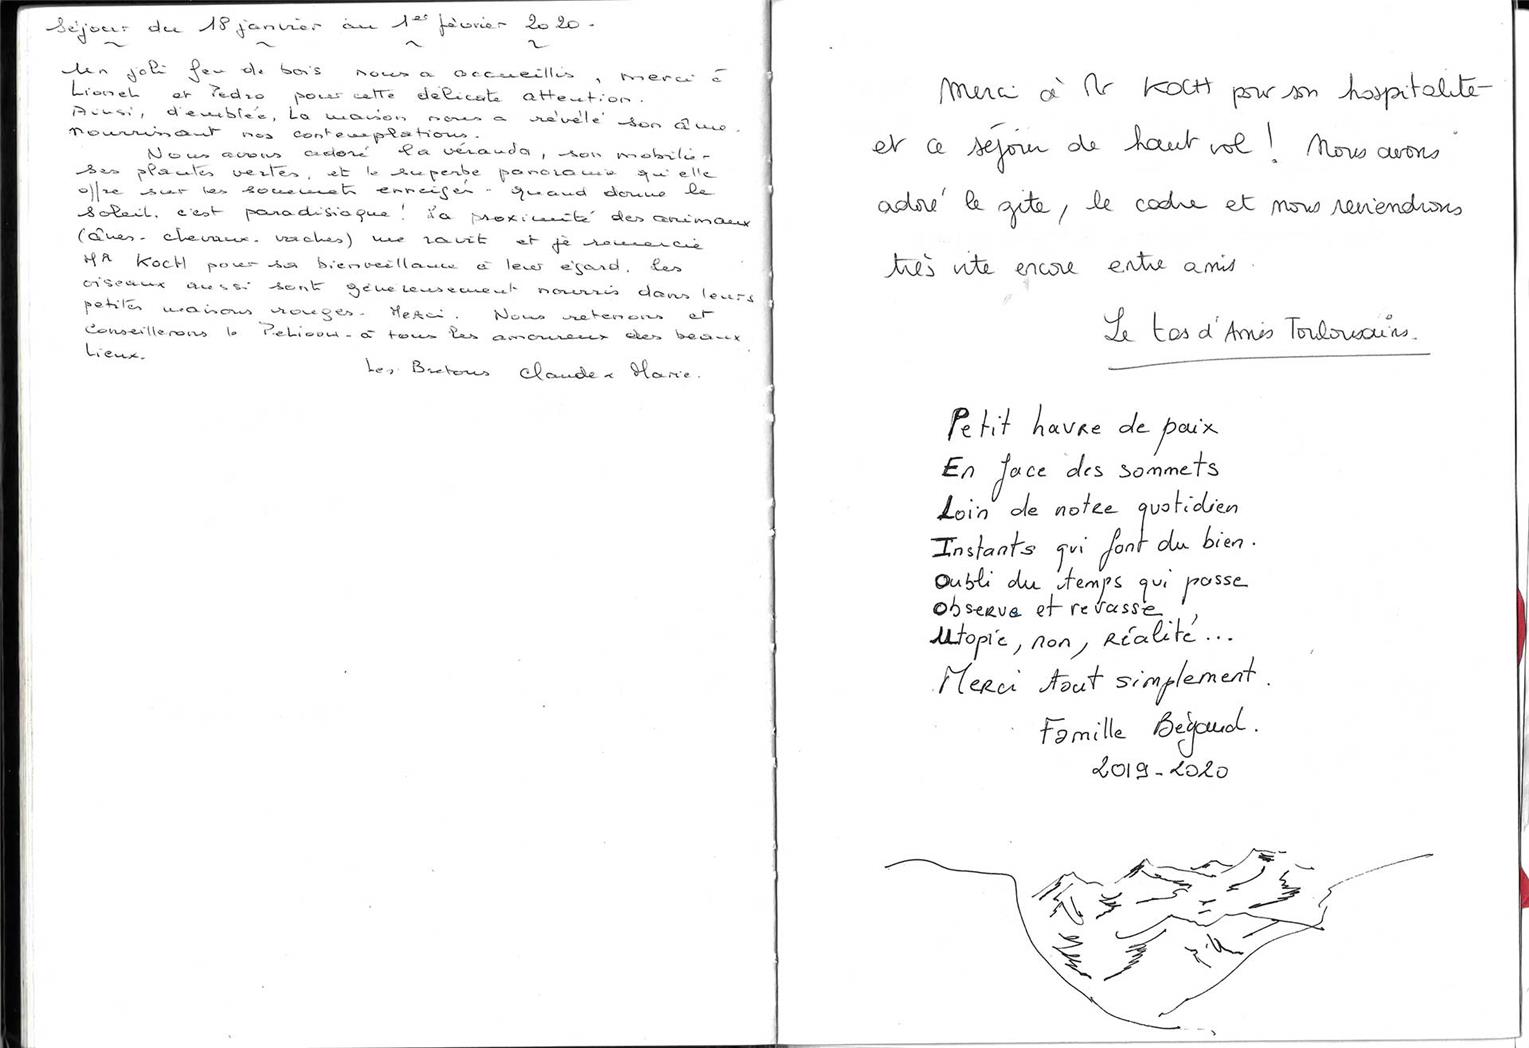 Séjour du 18 janvier au 1er février 2020.
Un joli feu de bois nous a accueillis, merci à
Lionel et Pedro pour cette délicate attention.
Ainsi, d'emblée, la maison nous a révélé son âme.
nourrissant nos contemplations.
Nous avons adoré la véranda, son mobilier
ses plantes vertes, et le superbe panorama qu'elle
offre sur les sommets enneigés. quand donne le
soleil, c'est paradisiaque! La proximité des animaux
(ânes. chevaux. vaches) me ravit et je remercie
MR KOCH pour sa bienveillance à leur égard. Les
oiseaux aussi sont généreusement nourris dans leurs
petites maisons rouges. Merci. Nous retenons et
conseillerons le Peliou. à tous les amoureux des beaux
lieux.
Les Bretons Claude & Marie.
Merci à Mr KOCH pour son hospitalité
et ce séjour de haut vol! Nous avons
adoré le gîte, le cadre et nous reviendrons
très vite encore entre amis.
Le tas d'Amis Toulousains.
Petit havre de paix
En face des sommets
Loin de notre quotidien
Instants qui font du bien.
Oubli du temps qui passe
Observe et revasse,
Utopie, non, réalité...
Merci tout simplement.
Famille Bégaud.
2019-2020